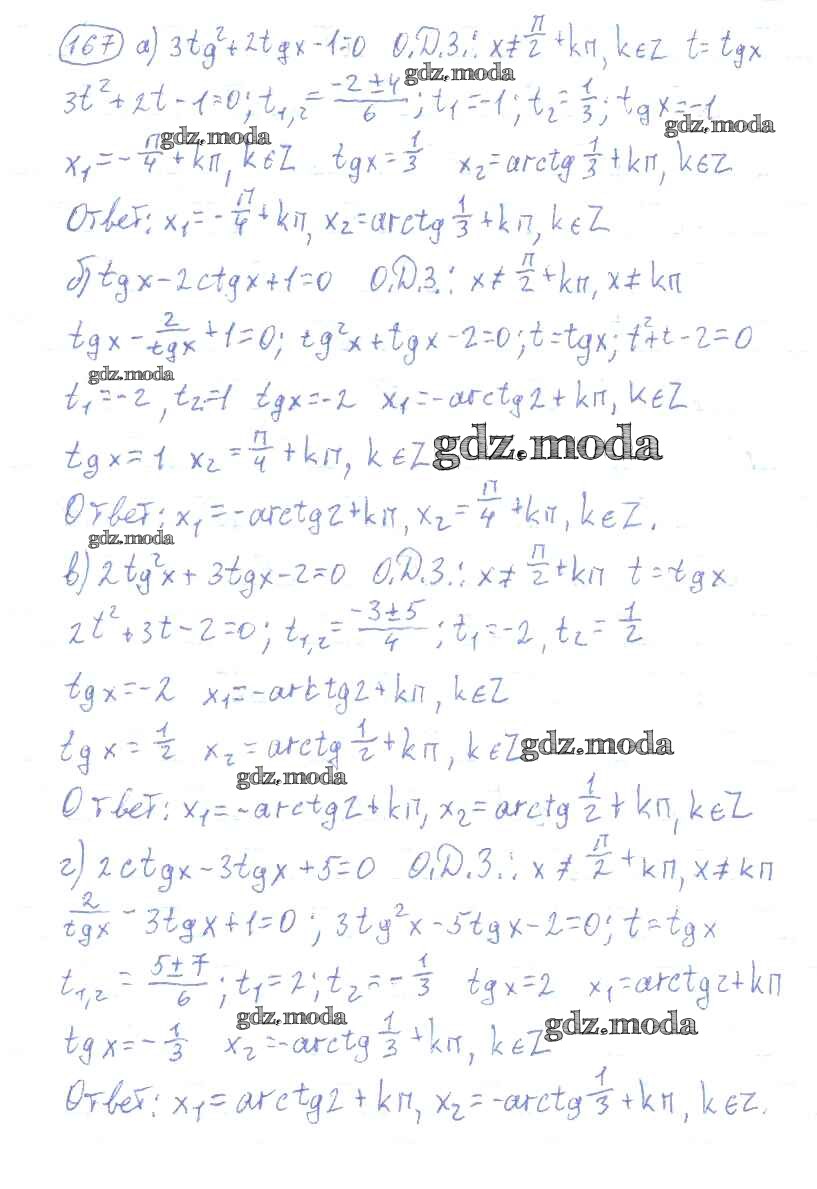 167 а) 3tg²+2tgx-1=0 О.Д.З.: x≠π/2+kπ, k∈Z t=tgx
gdz.moda
3t²+2t-1=0; t₁,₂=(-2±4)/6; t₁=-1; t₂=1/3; tgx=-1
gdz.moda
gdz.moda
x₁=-π/4+kπ, k∈Z tgx=1/3 x₂=arctg 1/3+kπ, k∈Z
Ответ: x₁=-π/4+kπ, x₂=arctg 1/3+kπ, k∈Z
б) tgx-2ctgx+1=0 О.Д.З.: x≠π/2+kπ, x≠kπ
tgx-2/tgx+1=0; tg²x+tgx-2=0; t=tgx; t²+t-2=0
gdz.moda
t₁=-2, t₂=1 tgx=-2 x₁=-arctg2+kπ, k∈Z
tgx=1 x₂=π/4+kπ, k∈Z gdz.moda
Ответ: x₁=-arctg2+kπ, x₂=π/4+kπ, k∈Z.
gdz.moda
в) 2tg²x+3tgx-2=0 О.Д.З.: x≠π/2+kπ t=tgx
2t²+3t-2=0; t₁,₂=(-3±5)/4; t₁=-2, t₂=1/2
tgx=-2 x₁=-arctg2+kπ, k∈Z
tgx=1/2 x₂=arctg 1/2+kπ, k∈Z gdz.moda
gdz.moda
Ответ: x₁=-arctg2+kπ, x₂=arctg 1/2+kπ, k∈Z
г) 2ctgx-3tgx+5=0 О.Д.З.: x≠π/2+kπ, x≠kπ
2/tgx-3tgx+1=0; 3tg²x-5tgx-2=0; t=tgx
t₁,₂=(5±7)/6; t₁=2; t₂=-1/3 tgx=2 x₁=arctg2+kπ
gdz.moda
tgx=-1/3 x₂=-arctg 1/3+kπ, k∈Z gdz.moda
Ответ: x₁=arctg2+kπ, x₂=-arctg 1/3+kπ, k∈Z.